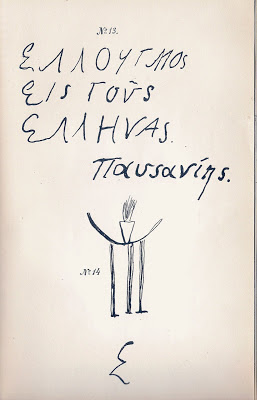 No. 13.
ΕΛΛΟΥΓΜΟς
ΕΙς ΓΟῦς
ΕΛΛΗΝΑς.
Παυσανίης.
No. 14
Ε